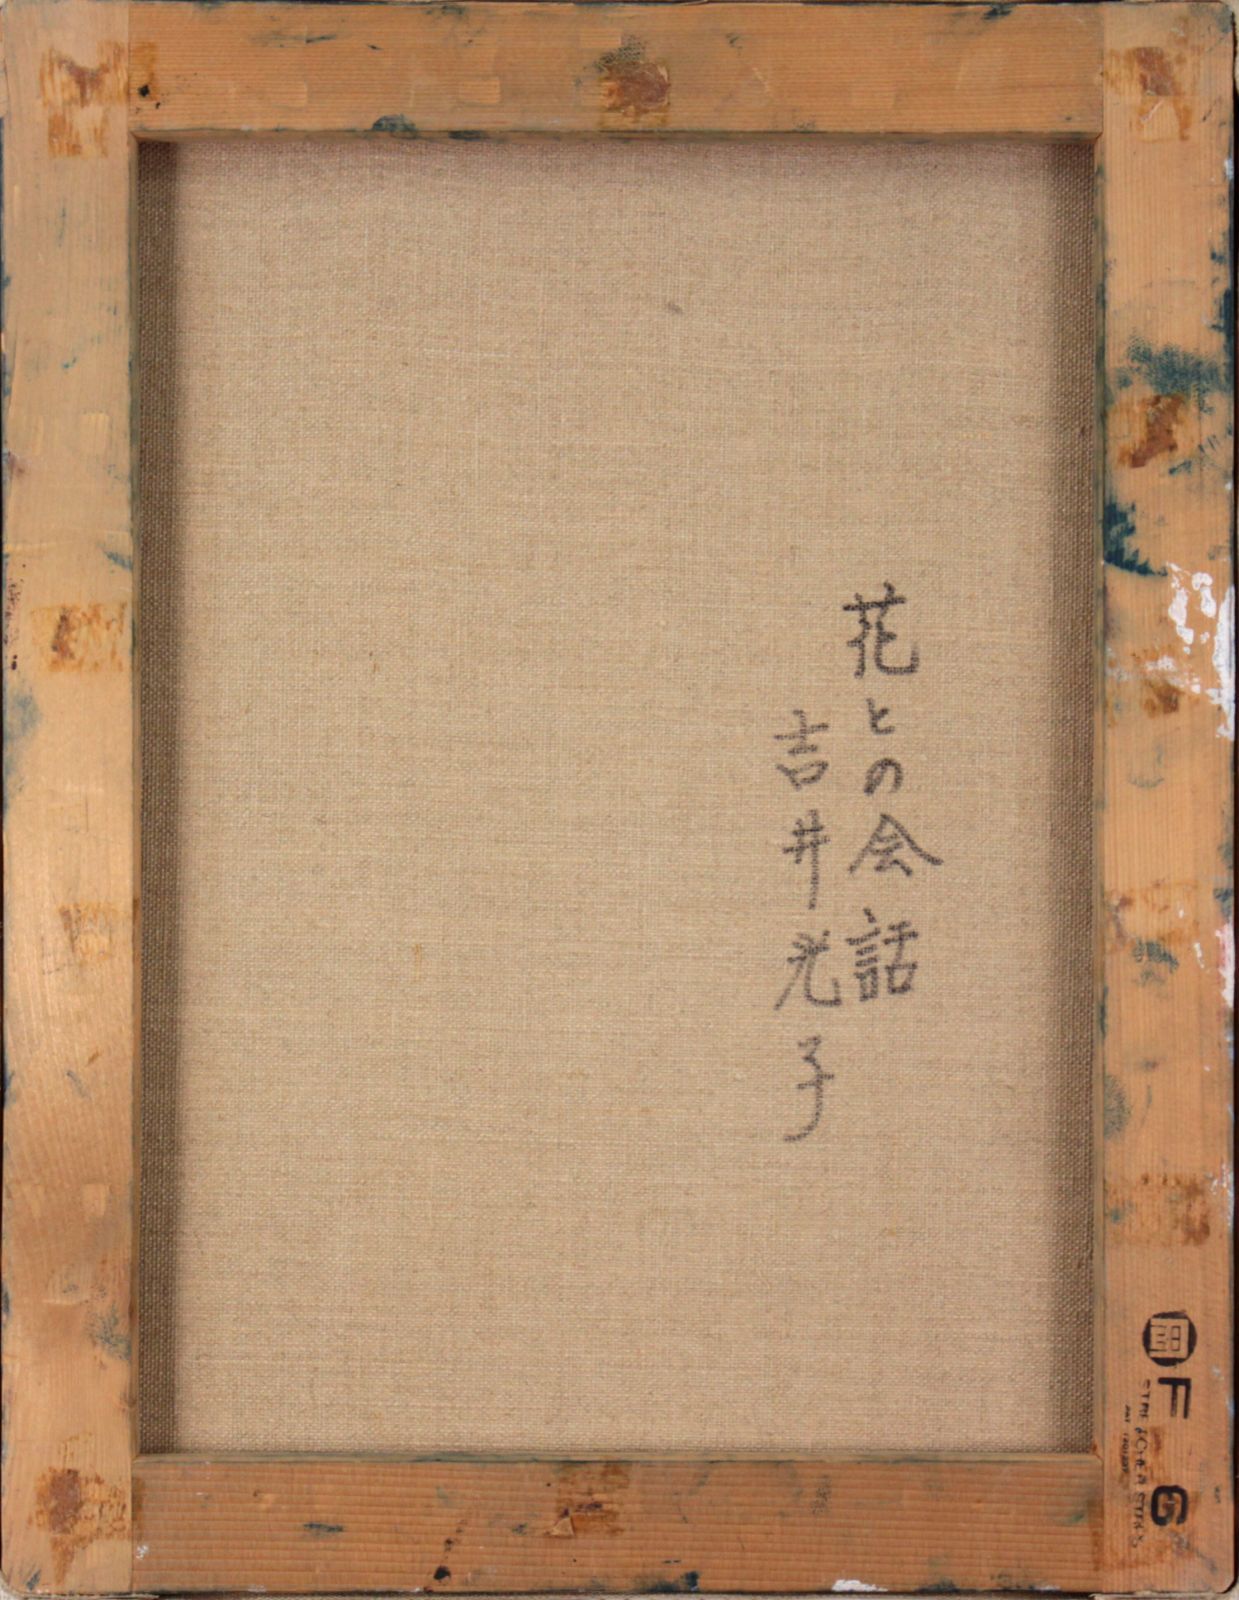 花との会話
吉井光子
F 6
STRETCHER STICKS